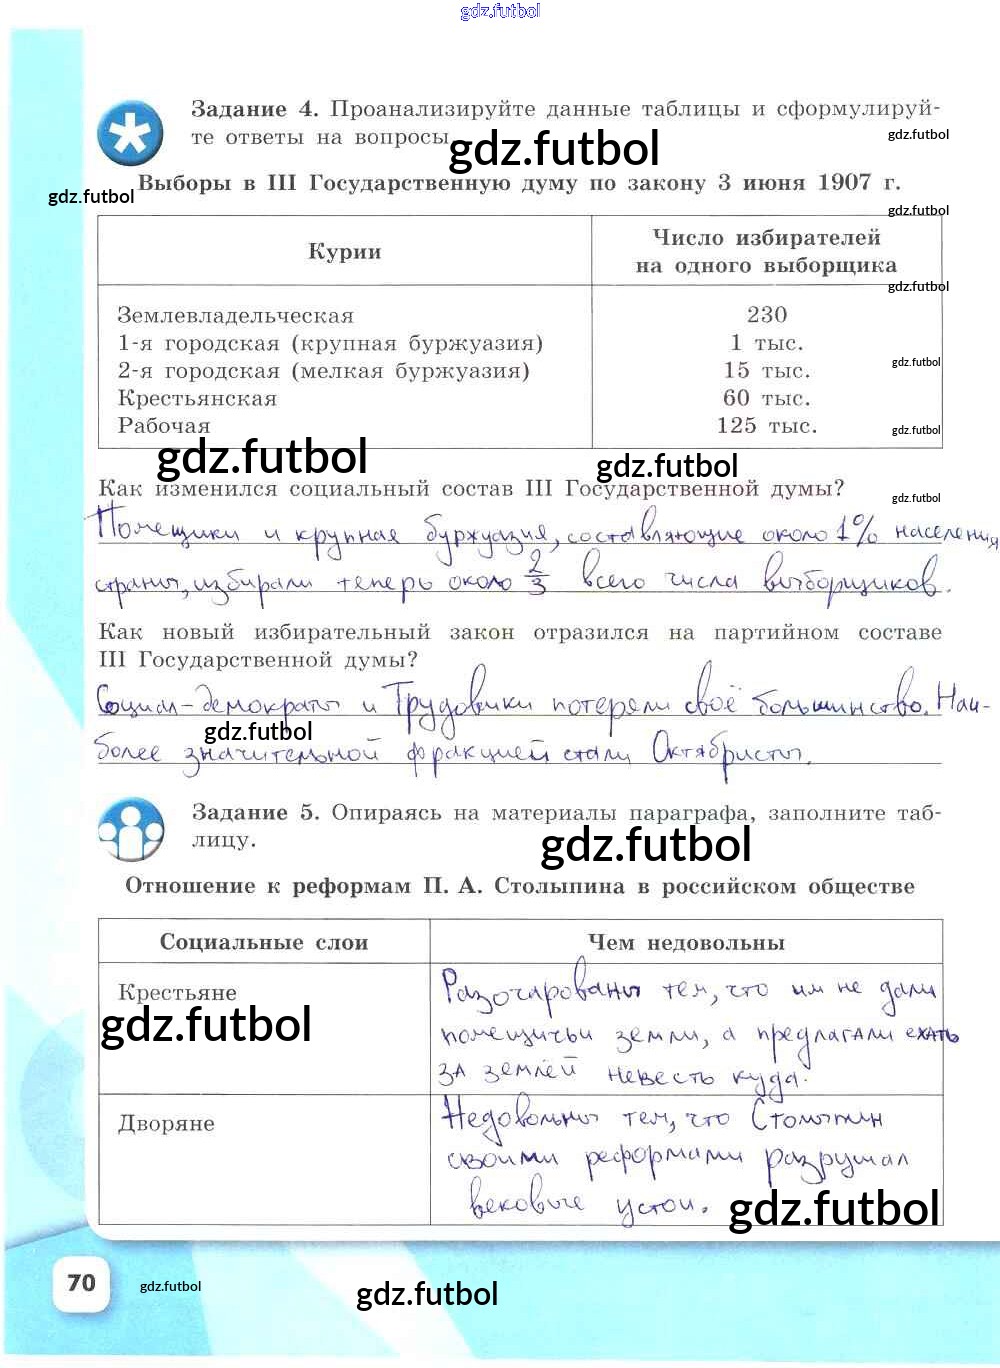 gdz.futbol
Задание 4. Проанализируйте данные таблицы и сформулируй-
gdz.futbol
те ответы на вопросы.
gdz.futbol
Выборы в III Государственную думу по закону 3 июня 1907 г.
gdz.futbol
gdz.futbol
Курии
Число избирателей
на одного выборщика
gdz.futbol
Землевладельческая 230
1-я городская (крупная буржуазия) 1 тыс.
gdz.futbol
2-я городская (мелкая буржуазия) 15 тыс.
Крестьянская 60 тыс.
Рабочая 125 тыс.
gdz.futbol
gdz.futbol
gdz.futbol
Как изменился социальный состав III Государственной думы?
gdz.futbol
Помещики и крупная буржуазия, составляющие около 1% населения
страны, избирали теперь около 2/3 всего числа выборщиков.
Как новый избирательный закон отразился на партийном составе
III Государственной думы?
Социал-демократы и Трудовики потеряли своё большинство. Наи-
gdz.futbol
более значительной фракцией стали Октябристы.
Задание 5. Опираясь на материалы параграфа, заполните таб-
лицу.
gdz.futbol
Отношение к реформам П. А. Столыпина в российском обществе
Социальные слои Чем недовольны
Крестьяне Разочарованы тем, что им не дали
gdz.futbol
помещичьи земли, а предлагали ехать
за землёй невесть куда.
Дворяне Недовольны тем, что Столыпин
своими реформами разрушал
вековые устои.
gdz.futbol
70
gdz.futbol
gdz.futbol